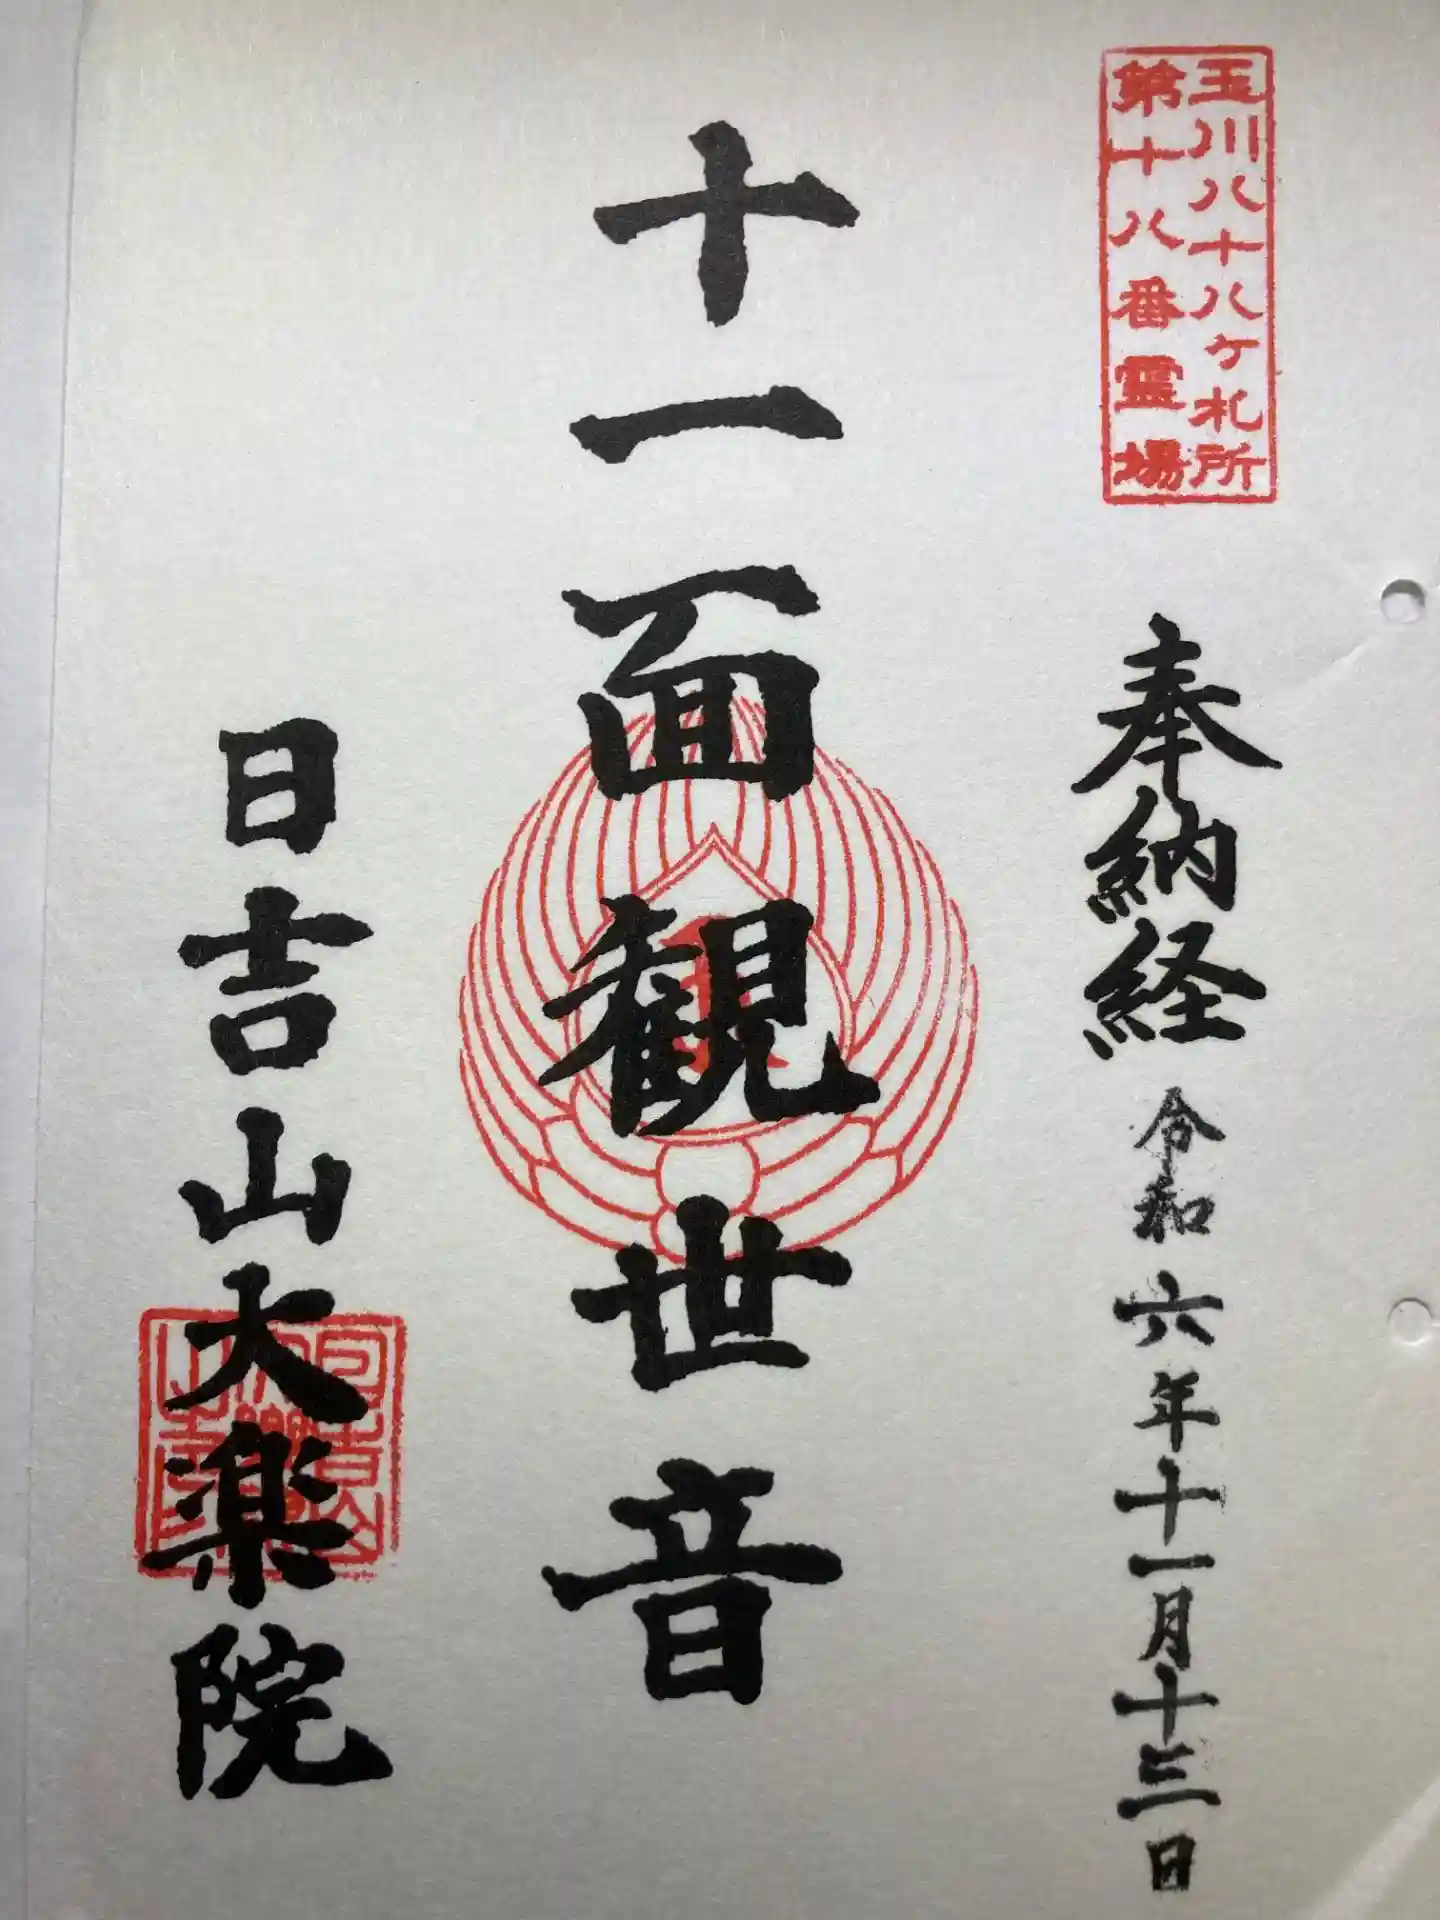 玉川八十八ケ札所
第十八番霊場
奉納経 令和六年十一月十三日
十一面観世音
日吉山大楽院